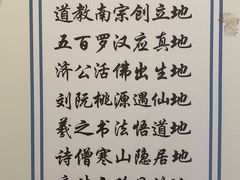 道教南宗创立地
五百罗汉应真地
济公活佛出生地
刘阮桃源遇仙地
羲之书法悟道地
诗僧寒山隐居地